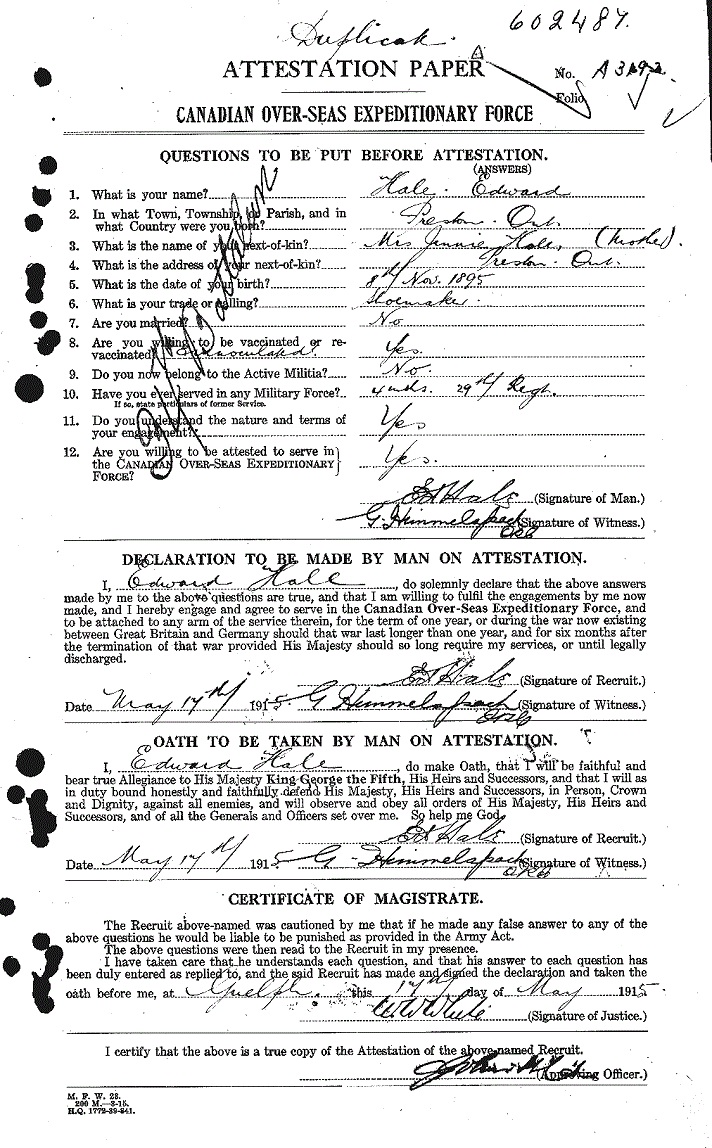 602487.
Duplicate.
ATTESTATION PAPER
No. A
Folio
CANADIAN OVER-SEAS EXPEDITIONARY FORCE
QUESTIONS TO BE PUT BEFORE ATTESTATION.
(ANSWERS)
1. What is your name? Hale. Edward
2. In what Town, Township, or Parish, and in
what Country were you born? Preston. Ont.
3. What is the name of your next-of-kin? Mrs Jennie Hale, (Mother).
4. What is the address of your next-of-kin? Preston. Ont.
5. What is the date of your birth? 8th Nov. 1895
6. What is your trade or calling? Shoemaker.
7. Are you married? No
8. Are you willing to be vaccinated or re-
vaccinated? Yes.
9. Do you now belong to the Active Militia? No.
10. Have you ever served in any Military Force? 29th Regt.
If so, state particulars of former Service.
11. Do you understand the nature and terms of
your engagement? Yes
12. Are you willing to be attested to serve in
the CANADIAN OVER-SEAS EXPEDITIONARY
FORCE? Yes.
Ed Hale (Signature of Man.)
G. Himmelspach (Signature of Witness.)
DECLARATION TO BE MADE BY MAN ON ATTESTATION.
I, Edward Hale, do solemnly declare that the above answers
made by me to the above questions are true, and that I am willing to fulfil the engagements by me now
made, and I hereby engage and agree to serve in the Canadian Over-Seas Expeditionary Force, and
to be attached to any arm of the service therein, for the term of one year, or during the war now existing
between Great Britain and Germany should that war last longer than one year, and for six months after
the termination of that war provided His Majesty should so long require my services, or until legally
discharged.
Ed Hale (Signature of Recruit.)
Date May 17th 1915. G Himmelspach (Signature of Witness.)
OATH TO BE TAKEN BY MAN ON ATTESTATION.
I, Edward Hale, do make Oath, that I will be faithful and
bear true Allegiance to His Majesty King George the Fifth, His Heirs and Successors, and that I will as
in duty bound honestly and faithfully defend His Majesty, His Heirs and Successors, in Person, Crown
and Dignity, against all enemies, and will observe and obey all orders of His Majesty, His Heirs and
Successors, and of all the Generals and Officers set over me. So help me God.
Ed Hale (Signature of Recruit.)
Date May 17th 1915 G Himmelspach (Signature of Witness.)
CERTIFICATE OF MAGISTRATE.
The Recruit above-named was cautioned by me that if he made any false answer to any of the
above questions he would be liable to be punished as provided in the Army Act.
The above questions were then read to the Recruit in my presence.
I have taken care that he understands each question, and that his answer to each question has
been duly entered as replied to, and the said Recruit has made and signed the declaration and taken the
oath before me, at Guelph. this 17th day of May 1915
(Signature of Justice.)
I certify that the above is a true copy of the Attestation of the above-named Recruit.
(Approving Officer.)
M. F. W. 23.
200 M.—3-15.
H.Q. 1772-39-841.